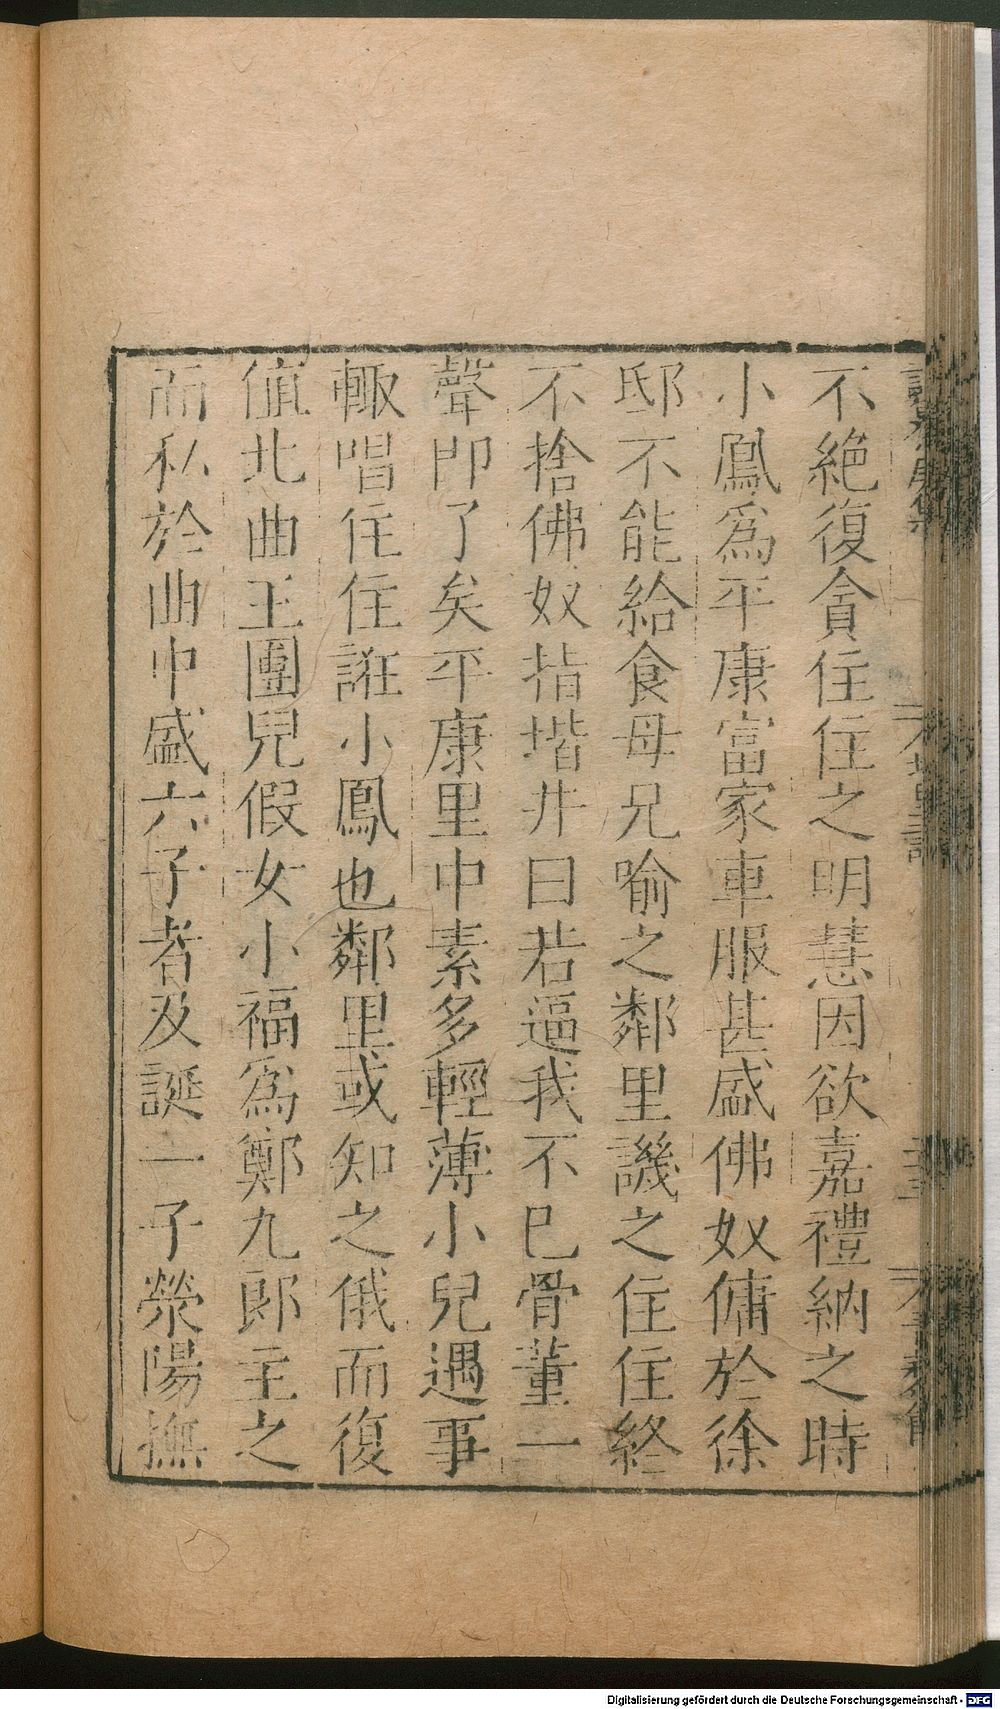 不絶復貪住住之明慧因欲嘉禮納之時
小鳳爲平康富家車服甚盛佛奴傭於徐
邸不能給食母兄喻之鄰里譏之住住終
不捨佛奴指堦井曰若逼我不已骨董一
聲即了矣平康里中素多輕薄小兒遇事
輙唱住住誑小鳳也鄰里或知之俄而復
値北曲王團兒假女小福爲鄭九郎主之
而私於曲中盛六子者及誕一子滎陽撫
Digitalisierung gefördert durch die Deutsche Forschungsgemeinschaft - DFG